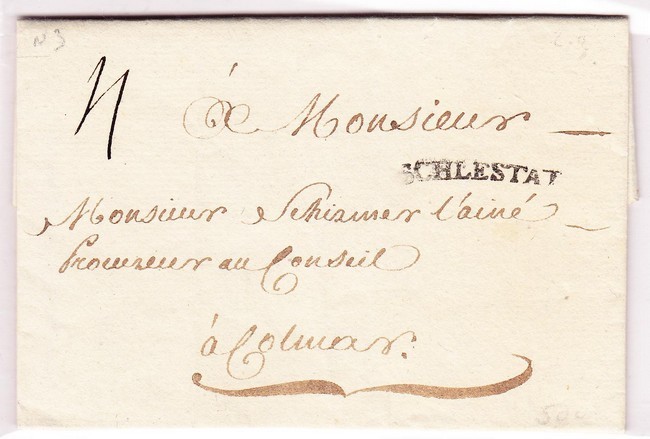 N 3
4
À Monsieur
SCHLESTAT
Monsieur Schirmer l'ainé
Procureur au Conseil
à Colmar.